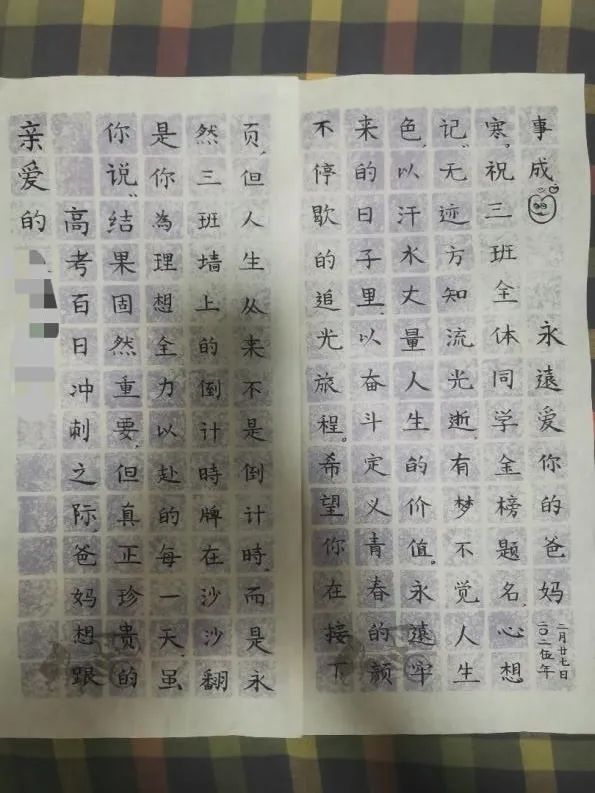 亲爱的
高考百日冲刺之际,爸妈想跟
你说:"结果固然重要,但真正珍贵的
是你為理想全力以赴的每一天。虽
然三班墙上的倒计時牌在沙沙翻
页,但人生从来不是倒计時,而是永
不停歇的追光旅程。希望你在接下
来的日子里,以奋斗定义青春的颜
色,以汗水丈量人生的价值。永遠牢
记:"无迹方知流光逝,有梦不觉人生
寒。祝三班全体同学金榜题名,心想
事成
永遠爱你的爸妈
二〇二伍年
二月廿七日